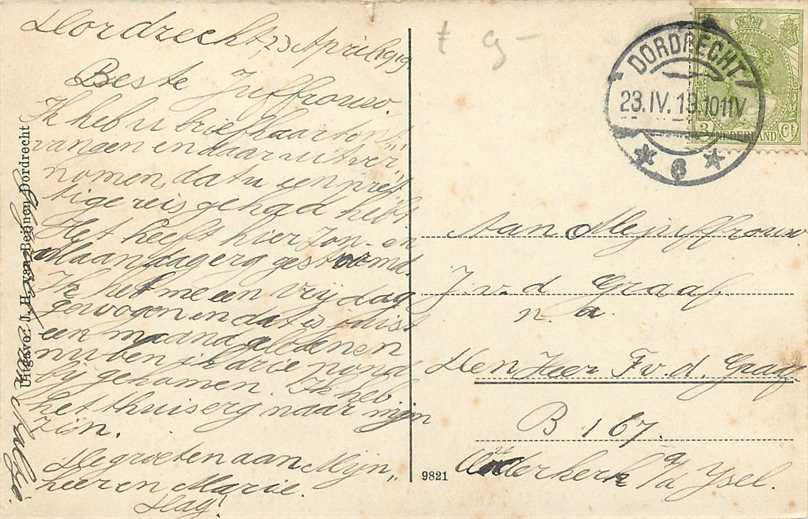 Dordrecht, 23 April 1919
Beste Juffrouw.
Ik heb u briefkaart ont-
vangen en daar uit ver-
nomen, dat u een pret-
tige reis gehad heb.
Het heeft hier Zon- en
Maandag erg gestormd.
Ik heb me een vrijdag
gewogen en dat is juist
een maand geleden en
nu ben ik drie pond
bij gekomen. Ik heb
het thuis erg naar mijn
zin.
De groeten aan Mijn-
heer en Marie.
Dag!
Uitgave: J. H. van Bennen, Dordrecht
9821
t g-
DORDRECHT
23.IV.19.10-11V
6
3 NEDERLAND Ct
Aan Mejuffrouw
J. v. d. Graaf
n. a.
Den Heer F. v. d. Graaf
B 167.
Ouderkerk a/d Ysel.